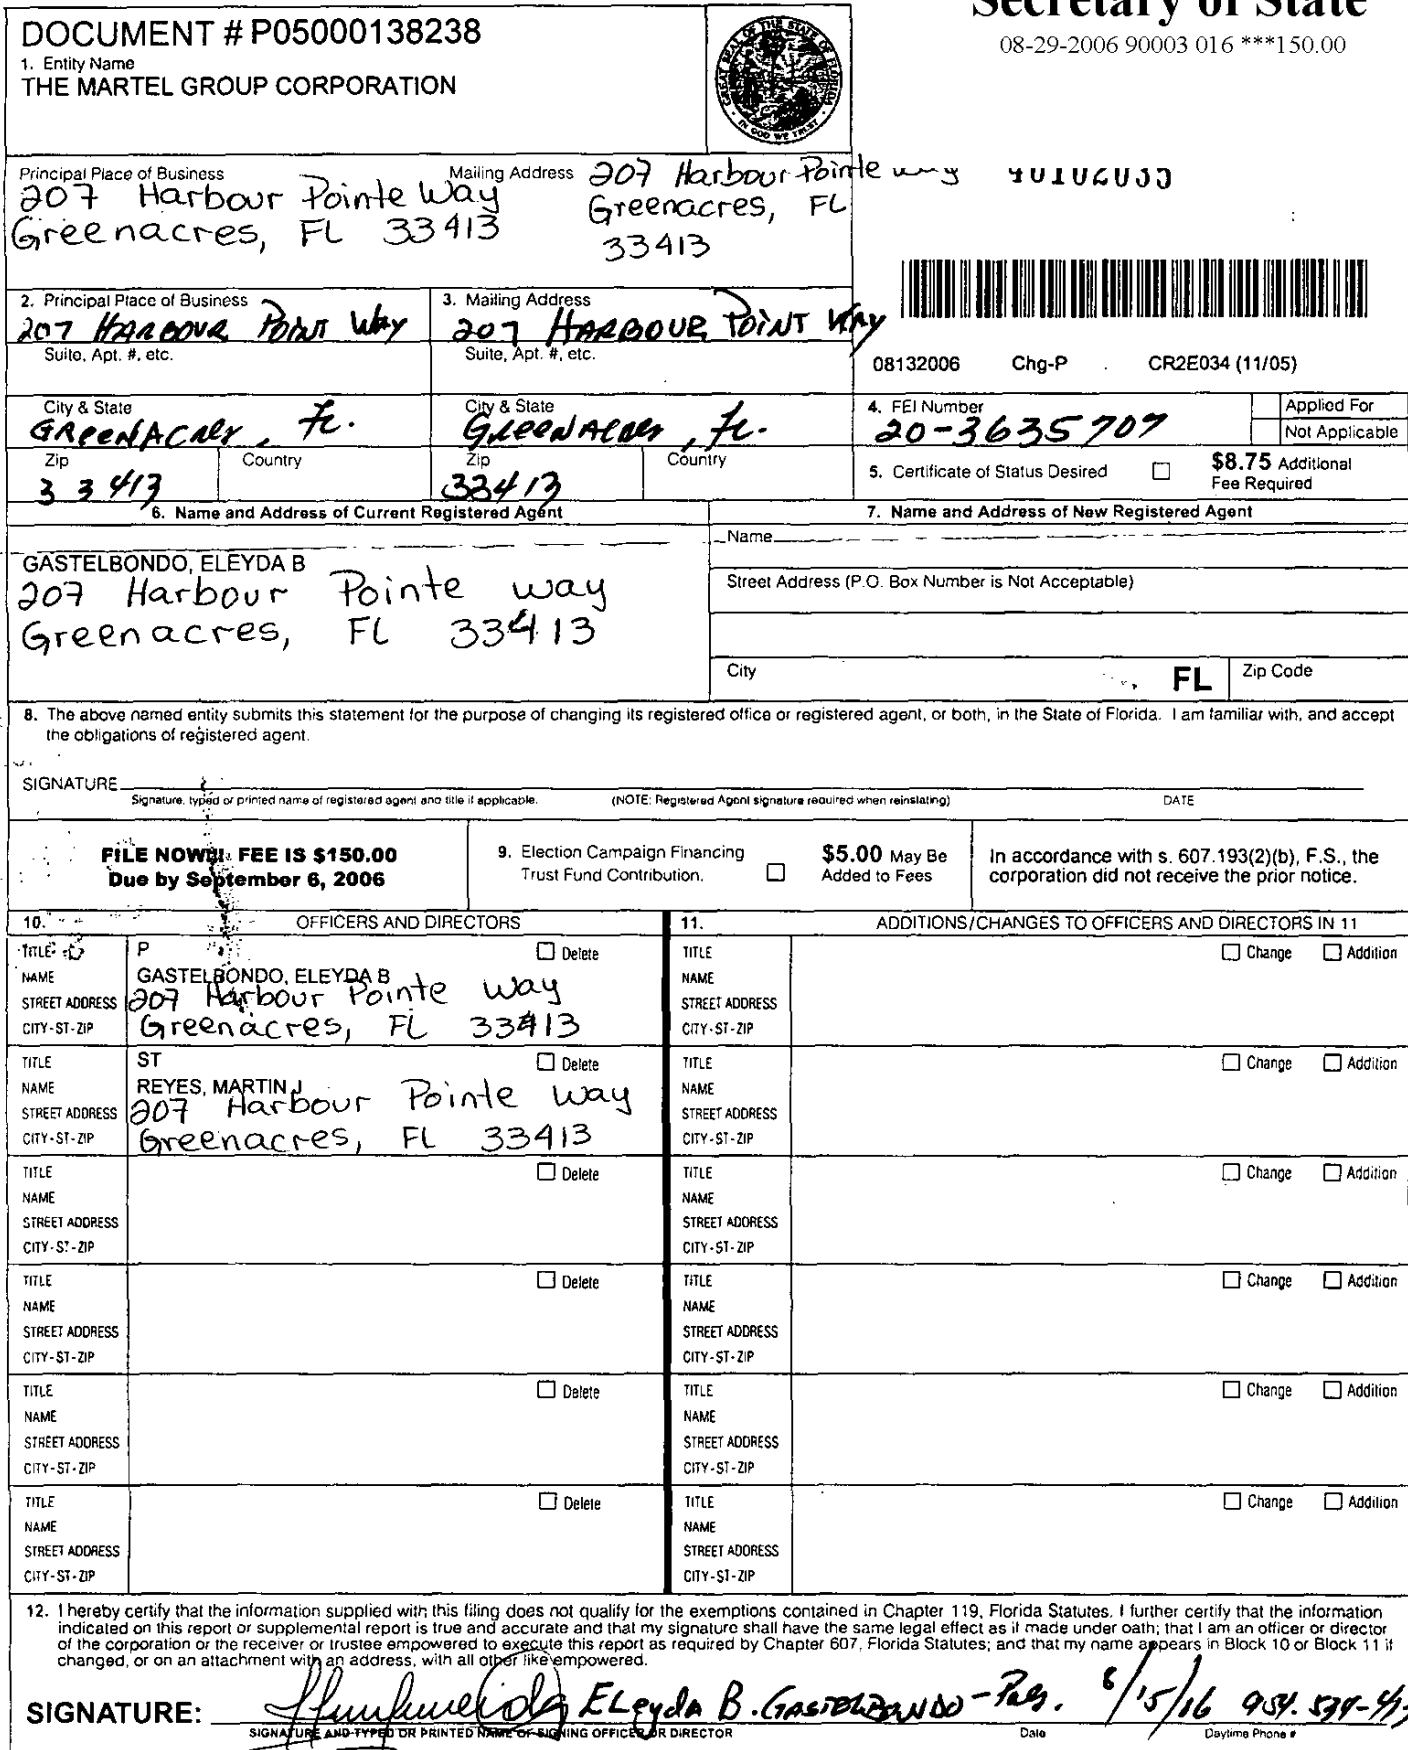 Secretary of State
08-29-2006 90003 016 ***150.00
DOCUMENT # P05000138238
1. Entity Name
THE MARTEL GROUP CORPORATION
GREAT SEAL OF THE STATE OF FLORIDA
IN GOD WE TRUST
Principal Place of Business
207 Harbour Pointe Way
Greenacres, FL 33413
Mailing Address
207 Harbour Pointe way
Greenacres, FL
33413
2. Principal Place of Business
207 HARBOUR POINT WAY
Suite, Apt. #, etc.
City & State
GREENACRES, FL.
Zip
33413
Country
3. Mailing Address
207 HARBOUR POINT WAY
Suite, Apt. #, etc.
City & State
GREENACRES, FL.
Zip
33413
Country
08132006 Chg-P CR2E034 (11/05)
4. FEI Number
20-3635707
Applied For
Not Applicable
5. Certificate of Status Desired
$8.75 Additional
Fee Required
6. Name and Address of Current Registered Agent
GASTELBONDO, ELEYDA B
207 Harbour Pointe way
Greenacres, FL 33413
7. Name and Address of New Registered Agent
Name
Street Address (P.O. Box Number is Not Acceptable)
City
FL
Zip Code
8. The above named entity submits this statement for the purpose of changing its registered office or registered agent, or both, in the State of Florida. I am familiar with, and accept
the obligations of registered agent.
SIGNATURE
Signature, typed or printed name of registered agent and title if applicable. (NOTE: Registered Agent signature required when reinstating) DATE
FILE NOW!!! FEE IS $150.00
Due by September 6, 2006
9. Election Campaign Financing
Trust Fund Contribution.
$5.00 May Be
Added to Fees
In accordance with s. 607.193(2)(b), F.S., the
corporation did not receive the prior notice.
10. OFFICERS AND DIRECTORS
11. ADDITIONS/CHANGES TO OFFICERS AND DIRECTORS IN 11
TITLE P Delete
NAME GASTELBONDO, ELEYDA B
STREET ADDRESS 207 Harbour Pointe Way
CITY-ST-ZIP Greenacres, FL 33413
TITLE Change Addition
NAME
STREET ADDRESS
CITY-ST-ZIP
TITLE ST Delete
NAME REYES, MARTIN J
STREET ADDRESS 207 Harbour Pointe Way
CITY-ST-ZIP Greenacres, FL 33413
TITLE Change Addition
NAME
STREET ADDRESS
CITY-ST-ZIP
TITLE Delete
NAME
STREET ADDRESS
CITY-ST-ZIP
TITLE Change Addition
NAME
STREET ADDRESS
CITY-ST-ZIP
TITLE Delete
NAME
STREET ADDRESS
CITY-ST-ZIP
TITLE Change Addition
NAME
STREET ADDRESS
CITY-ST-ZIP
TITLE Delete
NAME
STREET ADDRESS
CITY-ST-ZIP
TITLE Change Addition
NAME
STREET ADDRESS
CITY-ST-ZIP
TITLE Delete
NAME
STREET ADDRESS
CITY-ST-ZIP
TITLE Change Addition
NAME
STREET ADDRESS
CITY-ST-ZIP
12. I hereby certify that the information supplied with this filing does not qualify for the exemptions contained in Chapter 119, Florida Statutes. I further certify that the information
indicated on this report or supplemental report is true and accurate and that my signature shall have the same legal effect as if made under oath; that I am an officer or director
of the corporation or the receiver or trustee empowered to execute this report as required by Chapter 607, Florida Statutes; and that my name appears in Block 10 or Block 11 if
changed, or on an attachment with an address, with all other like empowered.
SIGNATURE: ELeyda B. GASTELBONDO - Pres. 8/15/16 954.
SIGNATURE AND TYPED OR PRINTED NAME OF SIGNING OFFICER OR DIRECTOR Date Daytime Phone #